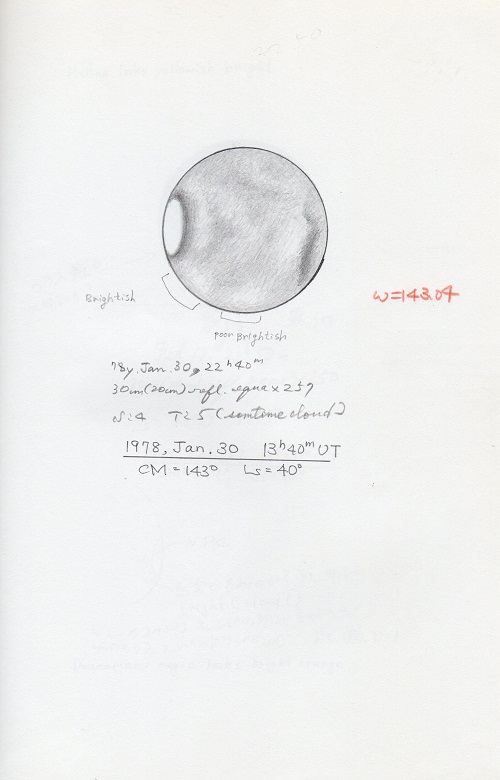 Brightish
ω=143.04
poor Brightish
'78y. Jan. 30, 22h40m
30cm(20cm) refl. equa x 257
S:4 T:5 (somtime cloud)
1978, Jan. 30 13h40m UT
CM = 143° Ls = 40°